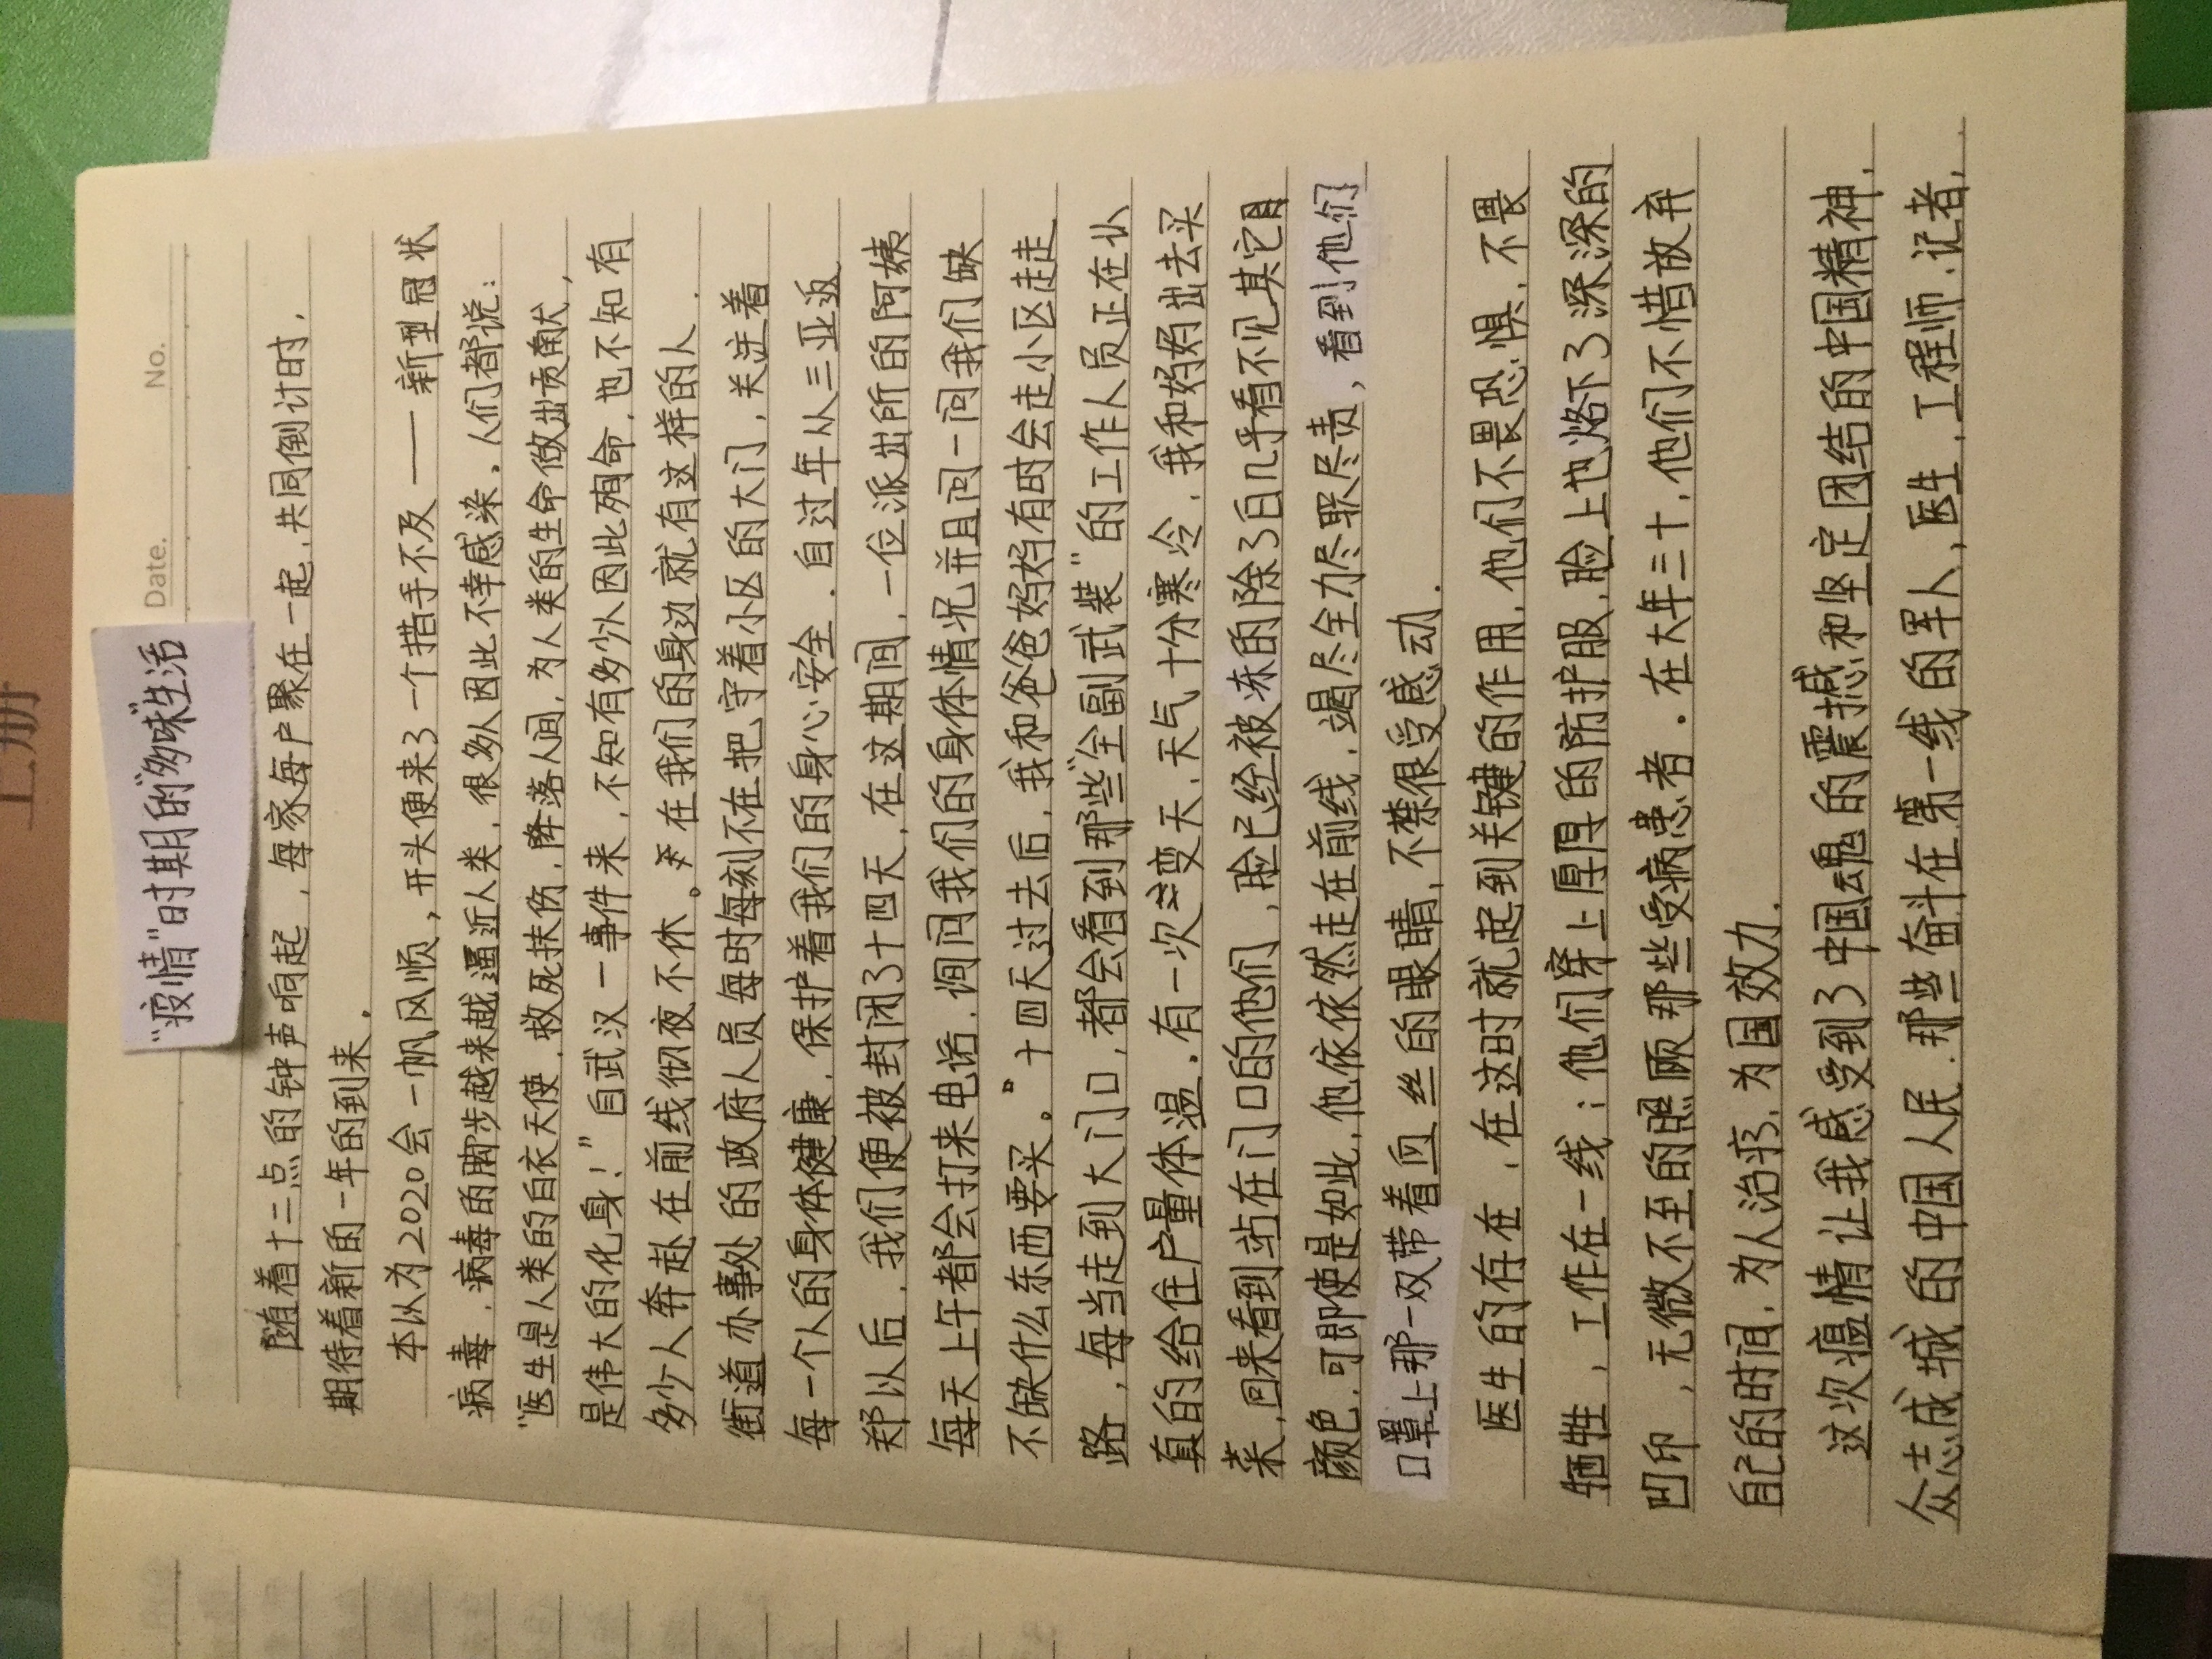 上册
Date. No.
“疫情”时期的“多味”生活
随着十二点的钟声响起，每家每户聚在一起，共同倒计时，
期待着新的一年的到来。
本以为2020会一帆风顺，开头便来了一个措手不及——新型冠状
病毒，病毒的脚步越来越逼近人类，很多人因此不幸感染。人们都说：
“医生是人类的白衣天使，救死扶伤，降落人间，为人类的生命做出贡献，
是伟大的化身！”自武汉一事件来，不知有多少人因此殉命，也不知有
多少人奔赴在前线彻夜不休。在我们的身边就有这样的人.
街道办事处的政府人员每时每刻不在把守着小区的大门，关注着
每一个人的身体健康，保护着我们的身心安全．自过年从三亚返
郑以后，我们便被封闭了十四天，在这期间，一位派出所的阿姨
每天上午都会打来电话，询问我们的身体情况并且问一问我们缺
不缺什么东西要买。”十四天过去后，我和爸爸妈妈有时会走小区走走
路，每当走到大门口，都会看到那些“全副武装”的工作人员正在认
真的给住户量体温．有一次变天，天气十分寒冷，我和妈妈出去买
菜，回来看到站在门口的他们，脸已经被冻的除了白几乎看不见其它
颜色，可即使是如此，他依依然走在前线，竭尽全力尽职尽责，看到他们
口罩上那一双带着血丝的眼睛，不禁很受感动．
医生的存在，在这时就起到关键的作用，他们不畏恐惧，不畏
牺牲，工作在一线：他们穿上厚厚的防护服，脸上也烙下了深深的
凹印，无微不至的照顾那些受病患者．在大年三十，他们不惜放弃
自己的时间，为人治疗，为国效力．
这次瘟情让我感受到了中国魂的震撼和坚定团结的中国精神，
众志成城的中国人民．那些奋斗在第一线的军人，医生，工程师，记者，